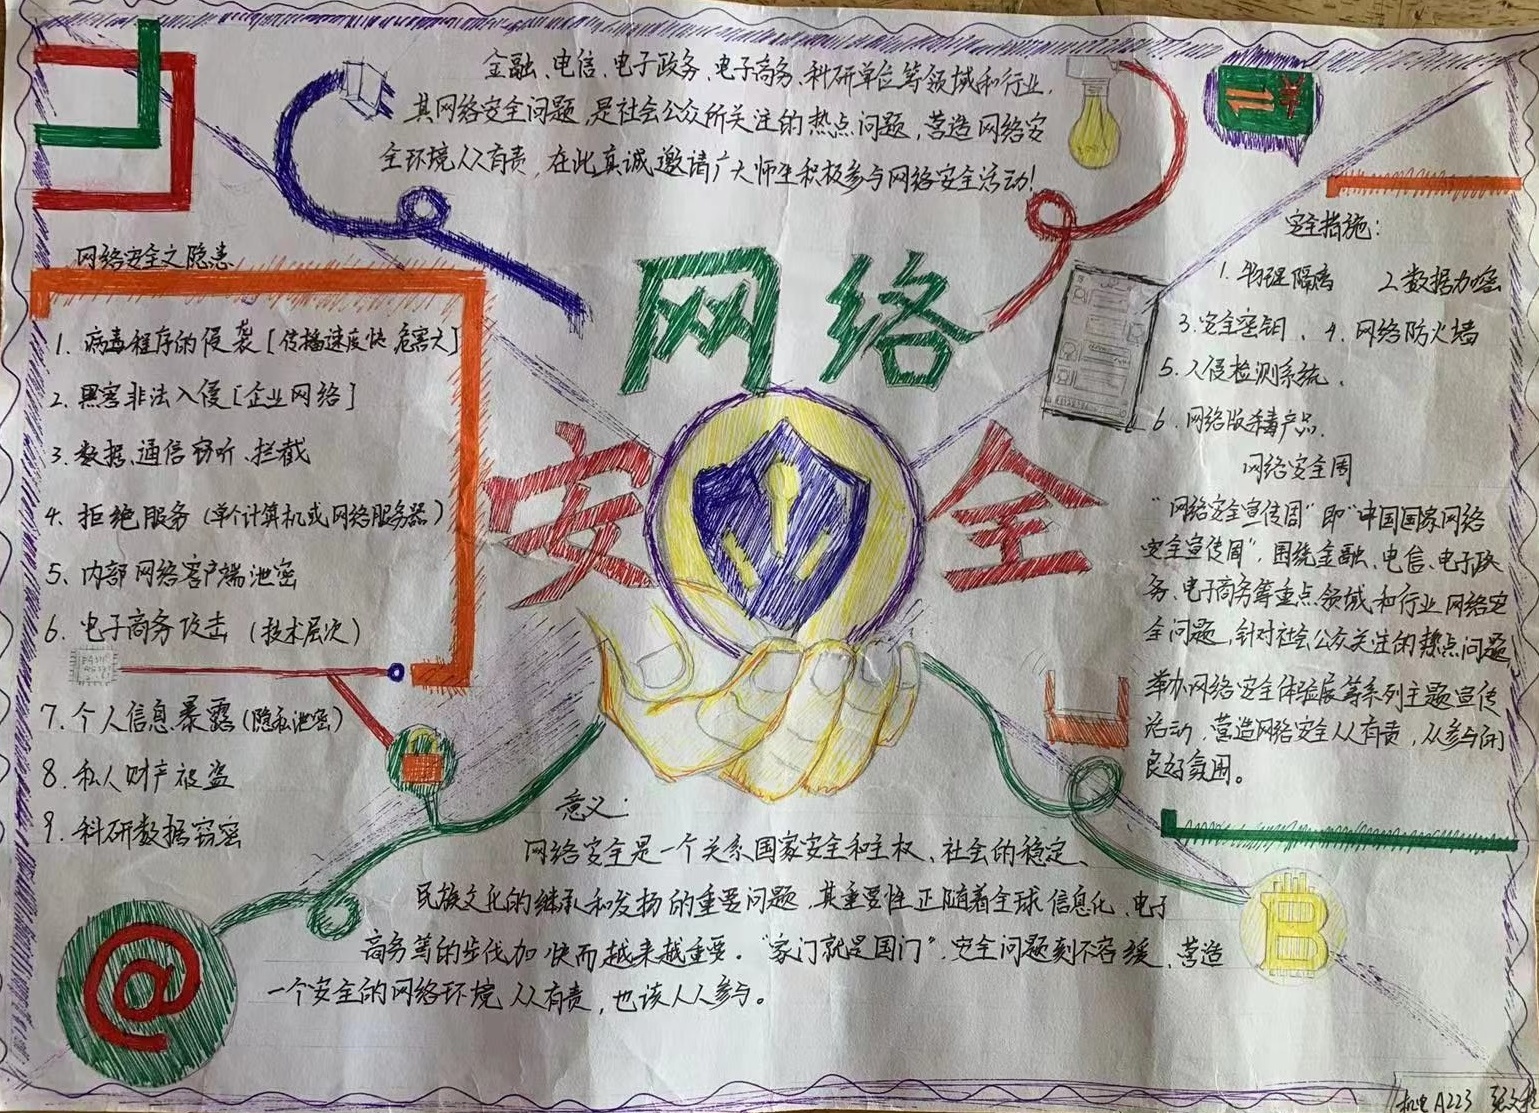 金融、电信、电子政务、电子商务、科研单位等领域和行业,
其网络安全问题,是社会公众所关注的热点问题,营造网络安
全环境人人有责,在此真诚邀请广大师生积极参与网络安全活动!
网络
安全
网络安全之隐患
1. 病毒程序的侵袭[传播速度快 危害大]
2. 黑客非法入侵[企业网络]
3. 数据、通信窃听、拦截
4. 拒绝服务(单个计算机或网络服务器)
5. 内部网络客户端泄密
6. 电子商务攻击(技术层次)
7. 个人信息暴露(隐私泄密)
8. 私人财产被盗
9. 科研数据窃密
@
安全措施:
1. 物理隔离 2. 数据加密
3. 安全密钥、4. 网络防火墙
5. 入侵检测系统、
6. 网络版杀毒产品.
网络安全周
“网络安全宣传周”即“中国国家网络
安全宣传周”,围绕金融、电信、电子政
务、电子商务等重点领域和行业网络安
全问题,针对社会公众关注的热点问题,
举办网络安全体验展等系列主题宣传
活动,营造网络安全人人有责,人人参与的
良好氛围。
意义:
网络安全是一个关系国家安全和主权、社会的稳定、
民族文化的继承和发扬的重要问题.其重要性正随着全球信息化、电子
商务等的步伐加快而越来越重要。“家门就是国门”,安全问题刻不容缓,营造
一个安全的网络环境人人有责,也该人人参与。
B
机电A223